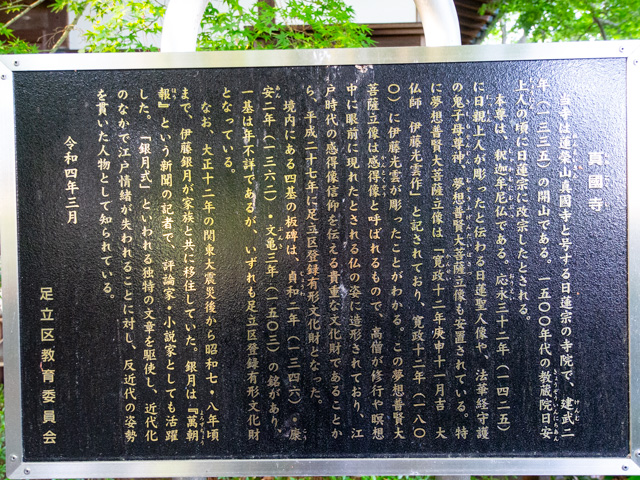 真國寺
当寺は蓮榮山真國寺と号する日蓮宗の寺院で、建武二
年（一三三五）の開山である。一五〇〇年代の教蔵院日安
上人の頃に日蓮宗に改宗したとされる。
本尊は、釈迦牟尼仏である。応永三十二年（一四二五）
に日親上人が彫ったと伝わる日蓮聖人像や、法華経守護
の鬼子母尊神、夢想普賢大菩薩立像も安置されている。特
に夢想普賢大菩薩立像は「寛政十二年庚申十一月吉 大
仏師 伊藤光雲作」と記されており、寛政十二年（一八〇
〇）に伊藤光雲が彫ったことがわかる。この夢想普賢大
菩薩立像は感得像と呼ばれるもので、高僧が修行や瞑想
中に眼前に現れたとされる仏の姿に造形されており、江
戸時代の感得像信仰を伝える貴重な文化財であることか
ら、平成二十七年に足立区登録有形文化財となった。
境内にある四基の板碑は、貞和二年（一三四六）・康
安二年（一三六二）・文亀三年（一五〇三）の銘があり、
一基は年不詳であるが、いずれも足立区登録有形文化財
となっている。
なお、大正十二年の関東大震災後から昭和七・八年頃
まで、伊藤銀月が家族と共に移住していた。銀月は『萬朝
報』という新聞の記者で、評論家・小説家としても活躍
した。『銀月式』といわれる独特の文章を駆使し、近代化
のなかで江戸情緒が失われることに対し、反近代の姿勢
を貫いた人物として知られている。
令和四年三月
足立区教育委員会